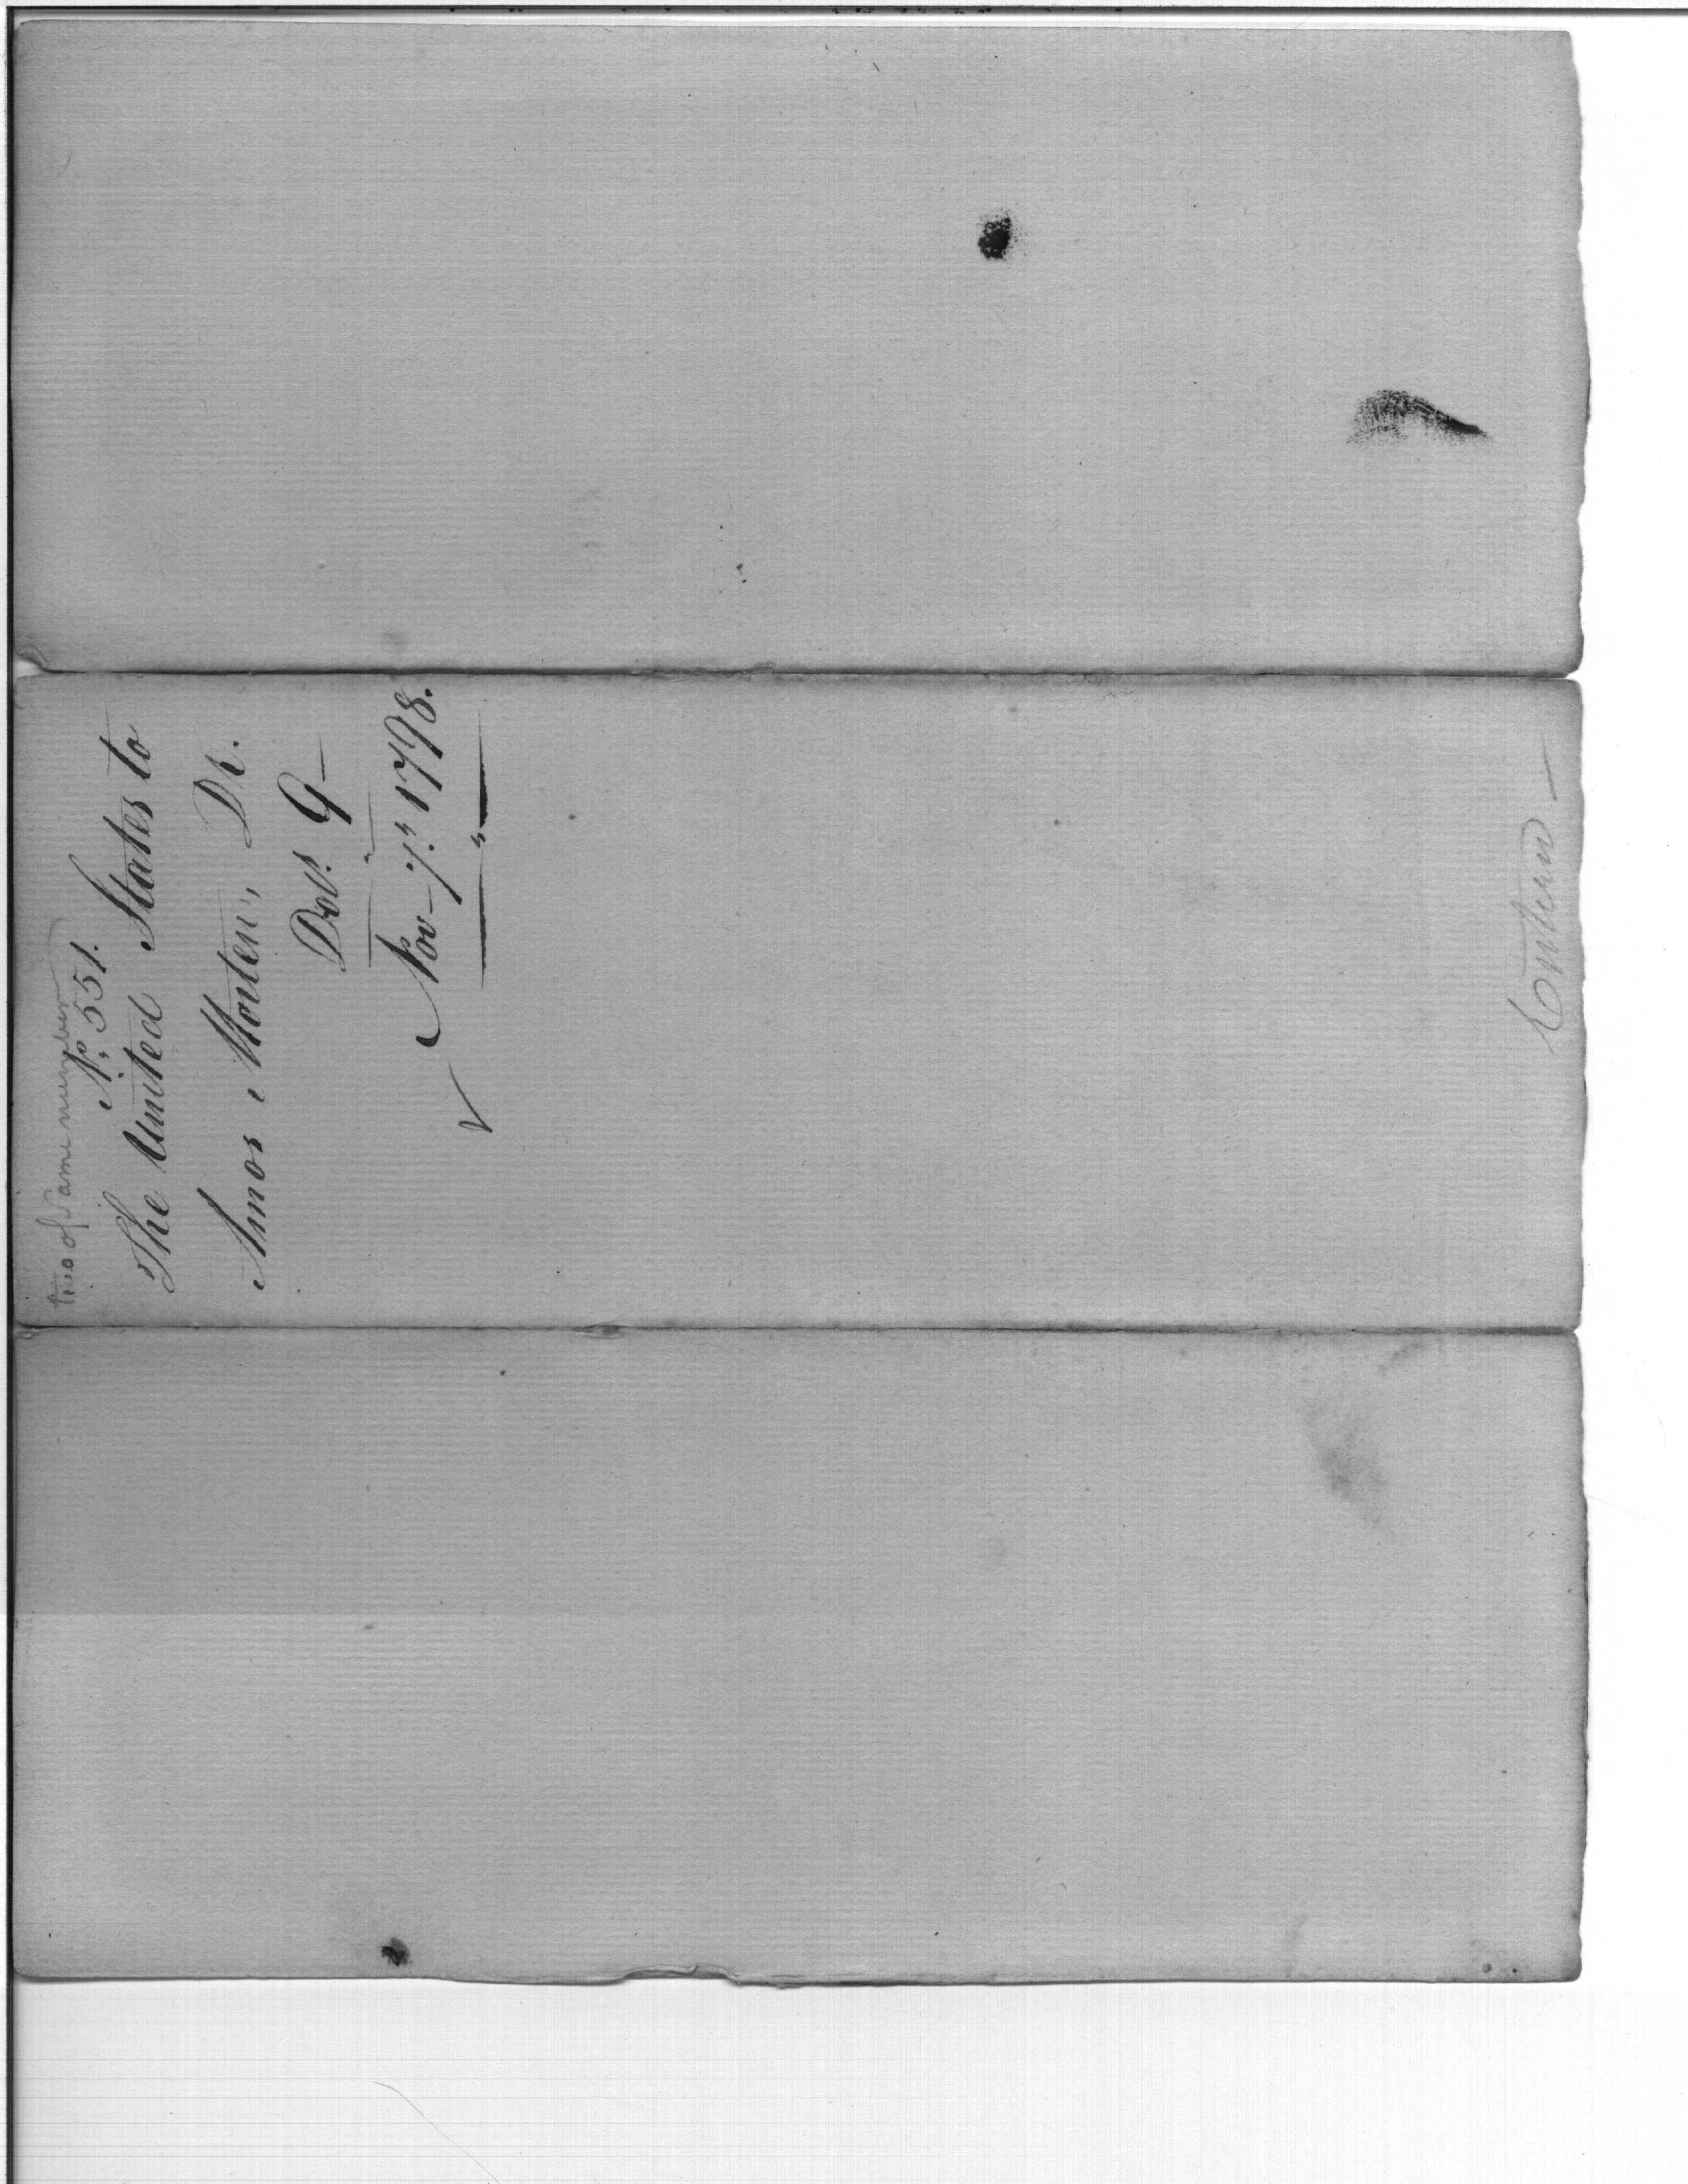 two of same number
No. 551.
The United States to
Amos Morten,, Dr.
Dols. 9
Nov 7th 1798.